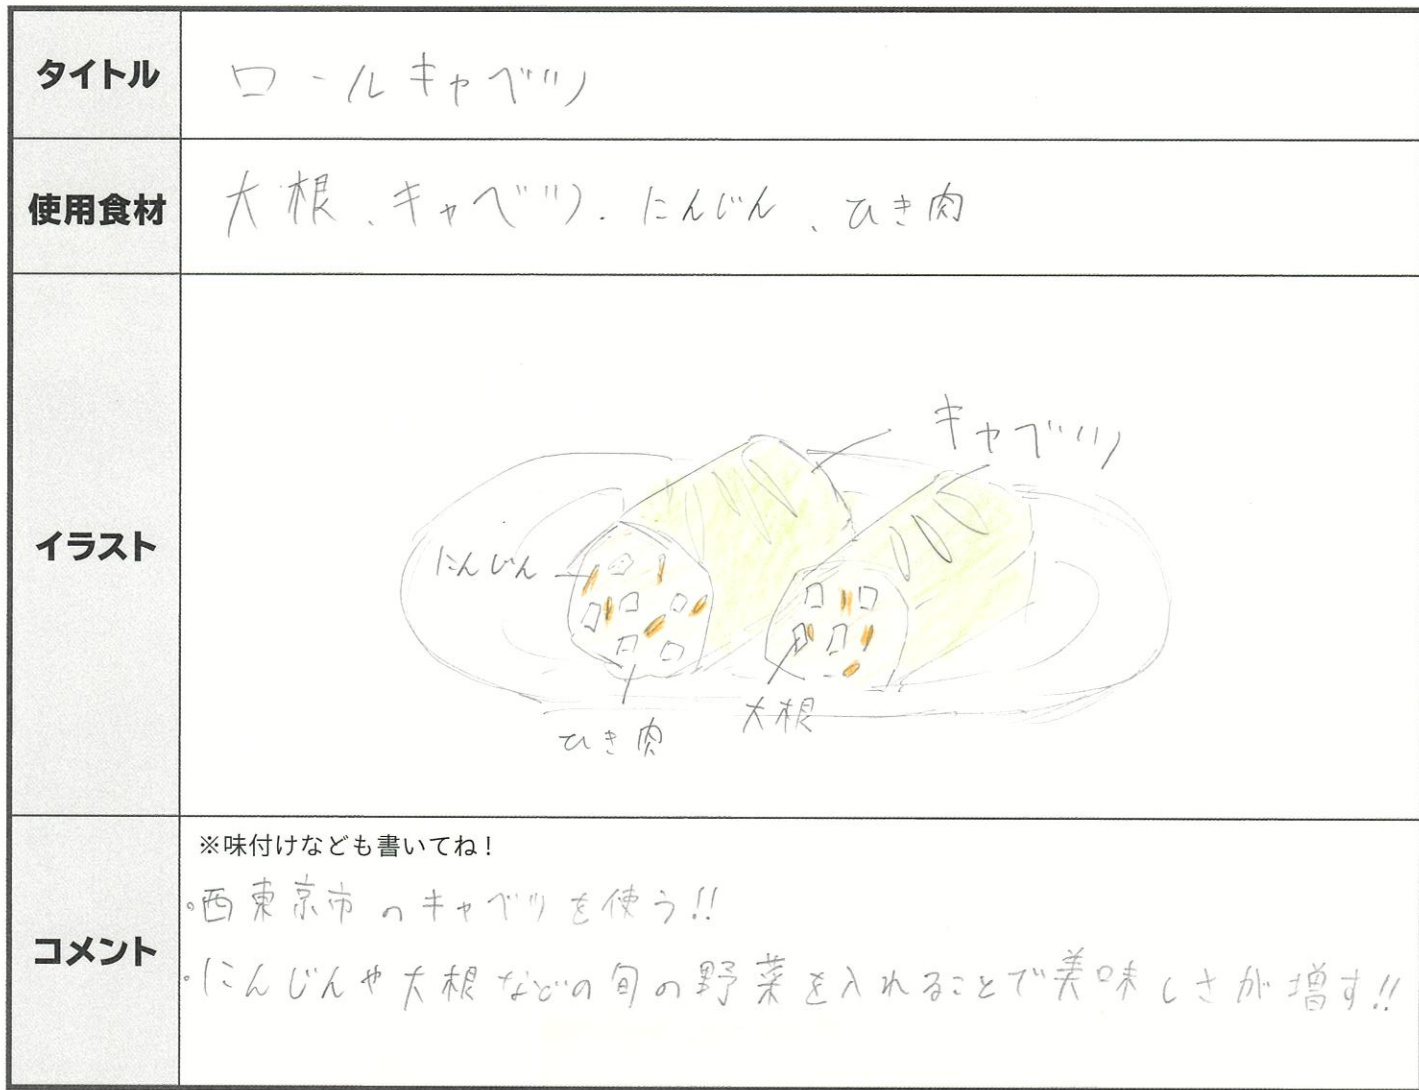 タイトル
ロールキャベツ
使用食材
大根、キャベツ、にんじん、ひき肉
イラスト
キャベツ
にんじん
大根
ひき肉
コメント
※味付けなども書いてね!
・西東京市のキャベツを使う!!
・にんじんや大根などの旬の野菜を入れることで美味しさが増す!!